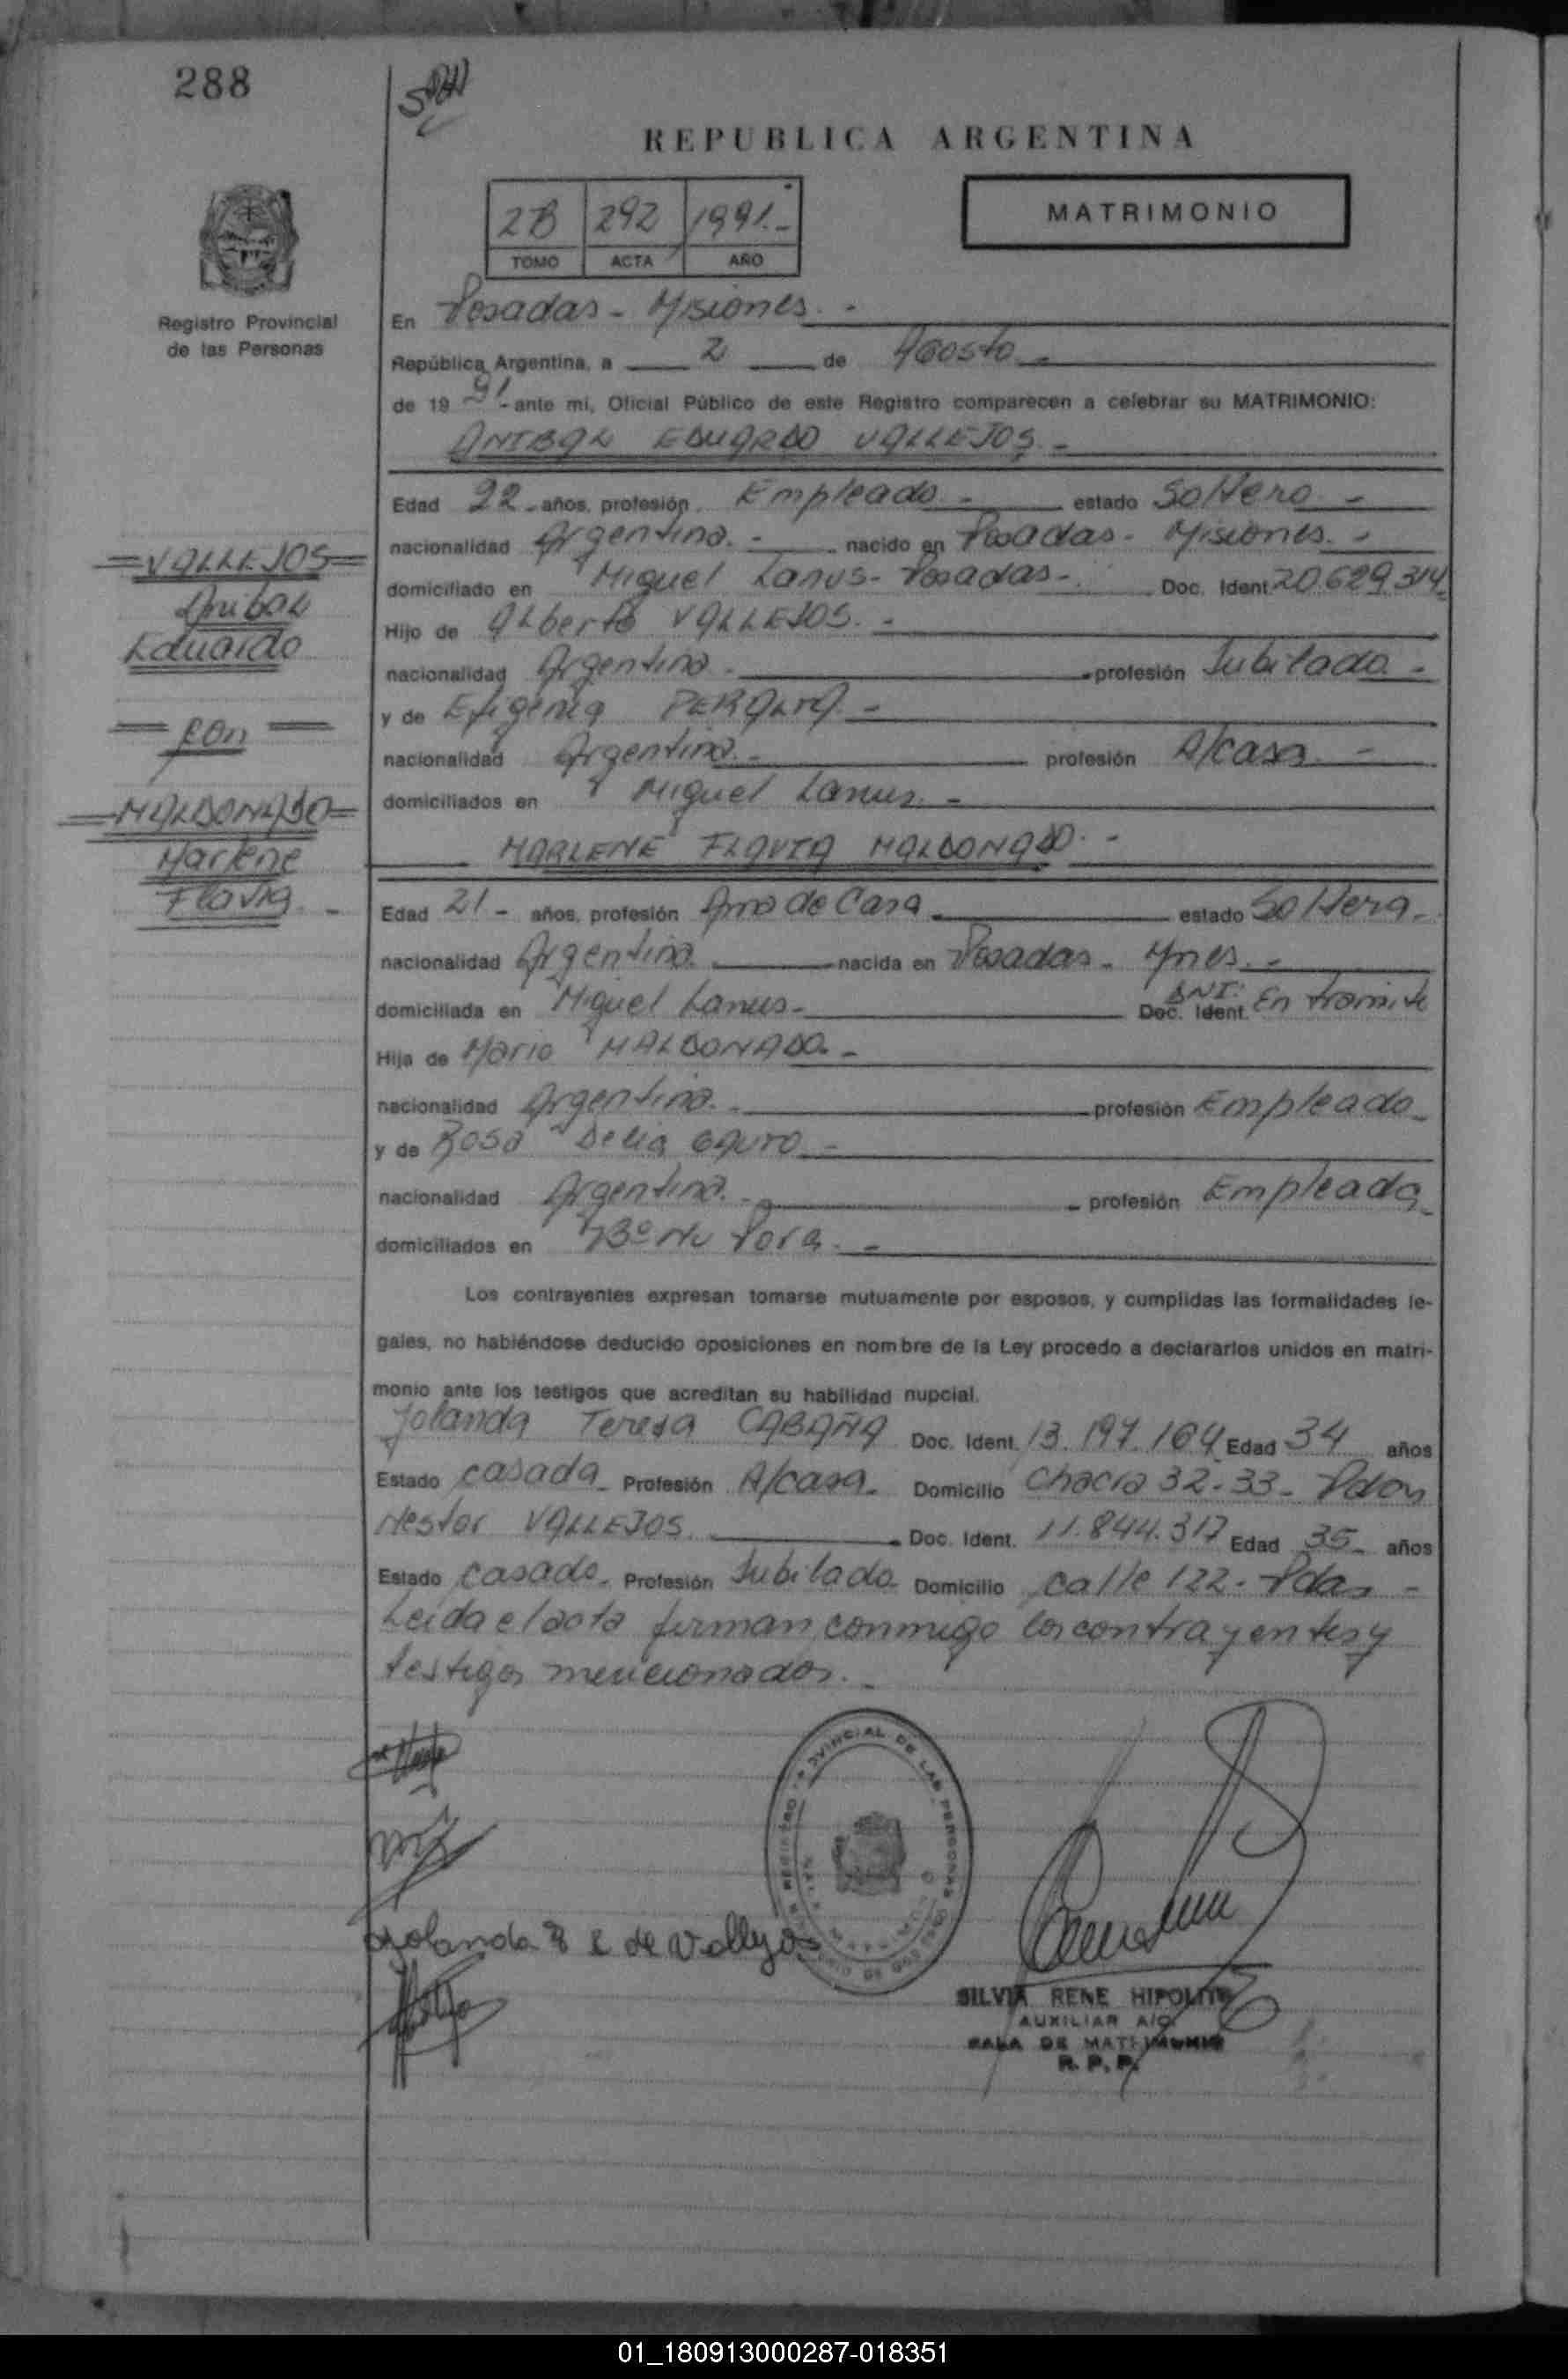 288
REPUBLICA ARGENTINA
2B 292 1991.-
TOMO ACTA AÑO
MATRIMONIO
Registro Provincial
de las Personas
En Posadas - Misiones. -
República Argentina, a 2 de Agosto -
de 19 91 - ante mi, Oficial Público de este Registro comparecen a celebrar su MATRIMONIO:
ANIBAL EDUARDO VALLEJOS -
Edad 22 - años, profesión Empleado. - estado Soltero. -
nacionalidad Argentina. - nacido en Posadas - Misiones. -
domiciliado en Miguel Lanus - Posadas - Doc. Ident. 20.629.314
Hijo de Alberto VALLEJOS. -
nacionalidad Argentina - profesión Jubilado -
y de Efigenia PERALTA. -
nacionalidad Argentina. - profesión A/casa. -
domiciliados en Miguel Lanus. -
=VALLEJOS=
Anibal
Eduardo
= con =
=MALDONADO=
Marlene
Flavia. -
MARLENE FLAVIA MALDONADO. -
Edad 21 - años, profesión Ama de Casa - estado Soltera. -
nacionalidad Argentina. nacida en Posadas - Mnes. -
domiciliada en Miguel Lanus - Doc. Ident. DNI: En tramite
Hija de Mario MALDONADO. -
nacionalidad Argentina. - profesión Empleado -
y de Rosa Delia -
nacionalidad Argentina. - profesión Empleada -
domiciliados en Bº Ñu Pora. -
Los contrayentes expresan tomarse mutuamente por esposos, y cumplidas las formalidades le-
gales, no habiéndose deducido oposiciones en nombre de la Ley procedo a declararlos unidos en matri-
monio ante los testigos que acreditan su habilidad nupcial.
Yolanda Teresa CABAÑA Doc. Ident. 13.197.164 Edad 34 años
Estado casada - Profesión A/casa - Domicilio Chacra 32-33 - Pdas
Nestor VALLEJOS Doc. Ident. 11.844.317 Edad 35 - años
Estado casado - Profesión Jubilado - Domicilio calle 122 - Pdas -
Leida el acta firman conmigo los contrayentes y
testigos mencionados. -
REGISTRO PROVINCIAL DE LAS PERSONAS
Yolanda de Vallejos
SILVIA RENE HIPOLITO
AUXILIAR A/C
SALA DE MATRIMONIO
R. P. P.
01_180913000287-018351